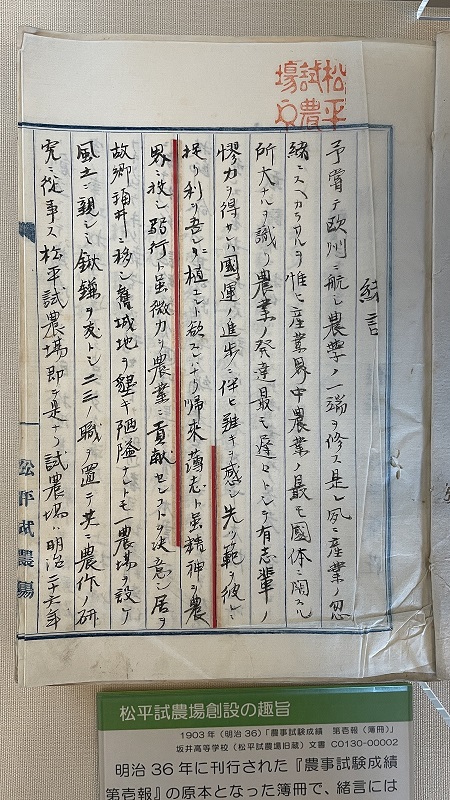 松平
試農
場印
緒言
予嘗テ欧州ニ航シ農学ノ一端ヲ修ス是レ夙ニ産業ノ忽
緒ニスヘカラサルヲ惟ヒ産業界中農業ノ最モ國体ニ関スル
所大ナルヲ識ル農業ノ発達最モ遅々トシテ有志輩ノ
力ヲ得サレハ國運ノ進歩ニ伴ヒ難キヲ感シ先ツ範ヲ彼レニ
採リ利ヲ吾レニ植エント欲スレハナリ帰来薄志ト虽精神ヲ農
界ニ投シ弱行ト虽微力ヲ農業ニ貢献セントヲ決意シ居ヲ
故郷福井ニ移シ舊城地ヲ墾キ陋隘ナレトモ一農場ヲ設ケ
風土ニ親シミ鍬鎌ヲ友トシ二三ノ職ヲ置テ共ニ農作ノ研
究ニ從事ス松平試農場即ニ是ナリ試農場ハ明治二十六年
松平試農場
松平試農場創設の趣旨
1903年（明治36）「農事試験成績　第壱報（簿冊）」
坂井高等学校（松平試農場旧蔵）文書 C0130-00002
明治36年に刊行された『農事試験成績
第壱報』の原本となった簿冊で、緒言には